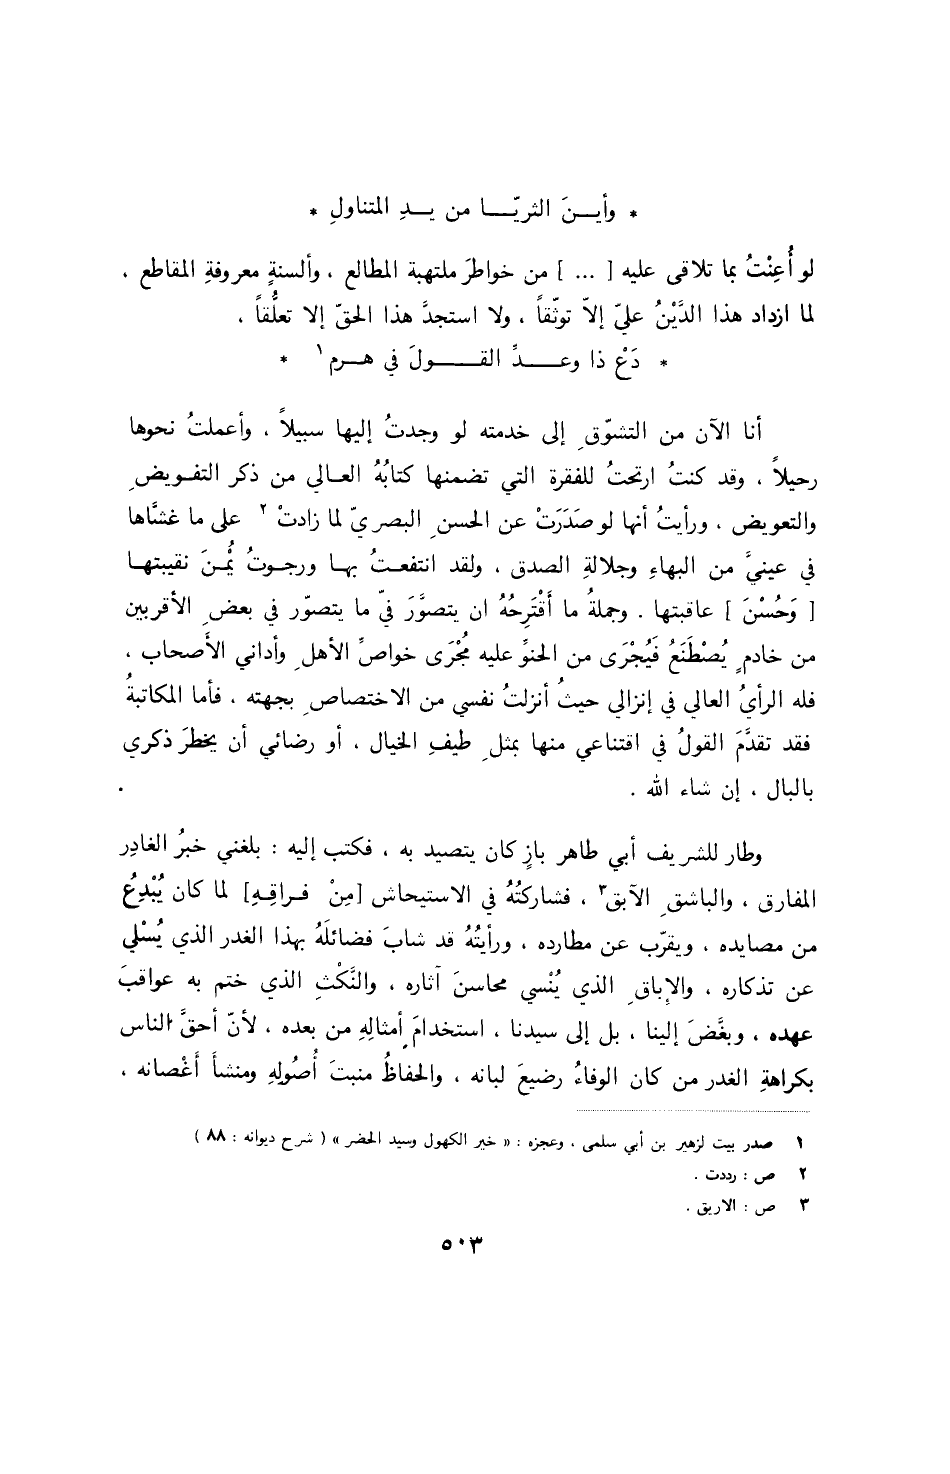 * وأيــنَ الثريّــا من يــدِ المتناولِ *
لو أُعِنْتُ بما تلاقى عليه [ ... ] من خواطرَ ملتهبة المطالع ، وألسنةٍ معروفةِ المقاطع ،
لما ازداد هذا الدَّيْنُ عليّ إلاّ توثّقاً ، ولا استجدَّ هذا الحقّ إلا تعلُّقاً .
* دَعْ ذا وعــدِّ القــولَ في هــرم ١ *
أنا الآن من التشوّقِ إلى خدمته لو وجدتُ إليها سبيلاً ، وأعملتُ نحوها
رحيلاً ، وقد كنتُ ارتحتُ للفقرة التي تضمنها كتابُهُ العـالي من ذكر التفـويضِ
والتعويض ، ورأيتُ أنها لو صَدَرَتْ عن الحسنِ البصريّ لما زادتْ ٢ على ما غشَّاها
في عينيَّ من البهاءِ وجلالةِ الصدق ، ولقد انتفعـتُ بهـا ورجـوتُ يُمْـنَ نقيبتهـا
[ وَحُسْنَ ] عاقبتها . وجملةُ ما أَقْتَرِحُهُ ان يتصوَّرَ فيّ ما يتصوّر في بعضِ الأقربين
من خادمٍ يُصْطَنَعُ فَيُجْرَى من الحنوِّ عليه مُجْرَى خواصِّ الأهلِ وأداني الأصحاب ،
فله الرأيُ العالي في إنزالي حيثُ أنزلتُ نفسي من الاختصاصِ بجهته ، فأما المكاتبةُ
فقد تقدَّمَ القولُ في اقتناعي منها بمثلِ طيفِ الخيال ، أو رضائي أن يخطرَ ذكري
بالبال ، إن شاء الله .
وطار للشريف أبي طاهر بازٍ كان يتصيد به ، فكتب إليه : بلغني خبرُ الغادِر
المفارق ، والباشقِ الآبق٣ ، فشاركتُهُ في الاستيحاش [مِنْ فـراقِـهِ] لما كان يُبْدِعُ
من مصايده ، ويقرّب عن مطارده ، ورأيتُهُ قد شابَ فضائلَهُ بهذا الغدر الذي يُسْلي
عن تذكاره ، والإباقِ الذي يُنْسي محاسنَ آثاره ، والنَّكْثِ الذي ختم به عواقبَ
عهده ، وبغَّضَ إلينا ، بل إلى سيدنا ، استخدامَ أمثالِهِ من بعده ، لأنّ أحقَّ الناس
بكراهةِ الغدر من كان الوفاءُ رضيعَ لبانه ، والحفاظُ منبتَ أُصُولِهِ ومنشأَ أَغْصانه ،
١ صدر بيت لزهير بن أبي سلمى ، وعجزه : « خير الكهول وسيد الحضر » ( شرح ديوانه : ٨٨ )
٢ ص : رددت .
٣ ص : الاريق .
٥٠٣